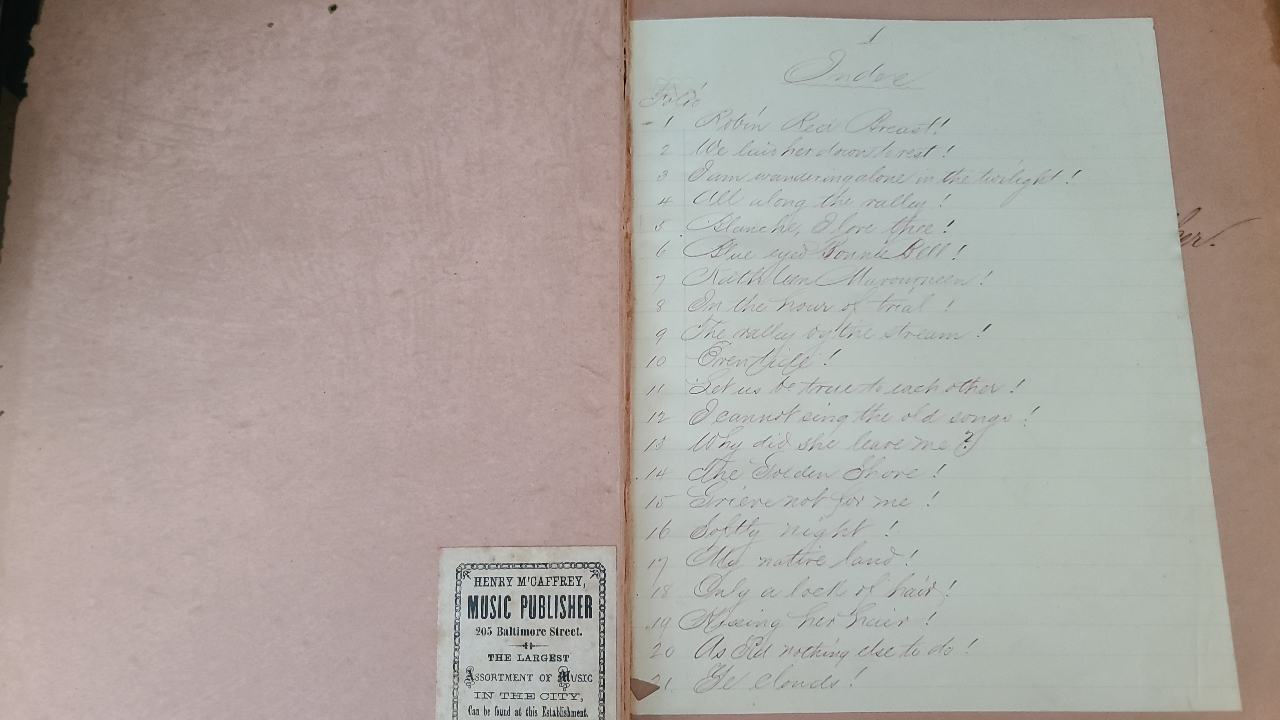 HENRY McCAFFREY,
MUSIC PUBLISHER
205 Baltimore Street.
THE LARGEST
ASSORTMENT OF MUSIC
IN THE CITY,
Can be found at this Establishment.
1
Index
Folio
1 Robin Red Breast!
2 We laid her down to rest!
3 I am wandering alone in the twilight!
4 All along the valley!
5 Blanche, I love thee!
6 Blue eyed Bonnie Bell!
7 Kathleen Mavourneen!
8 In the hour of trial!
9 The valley by the stream!
10 Eventide!
11 Let us be true to each other!
12 I cannot sing the old songs!
13 Why did she leave me?
14 The Golden Shore!
15 Grieve not for me!
16 Softly night!
17 My native land!
18 Only a lock of hair!
19 Kissing her hair!
20 As I'd nothing else to do!
21 Ye clouds!
her.